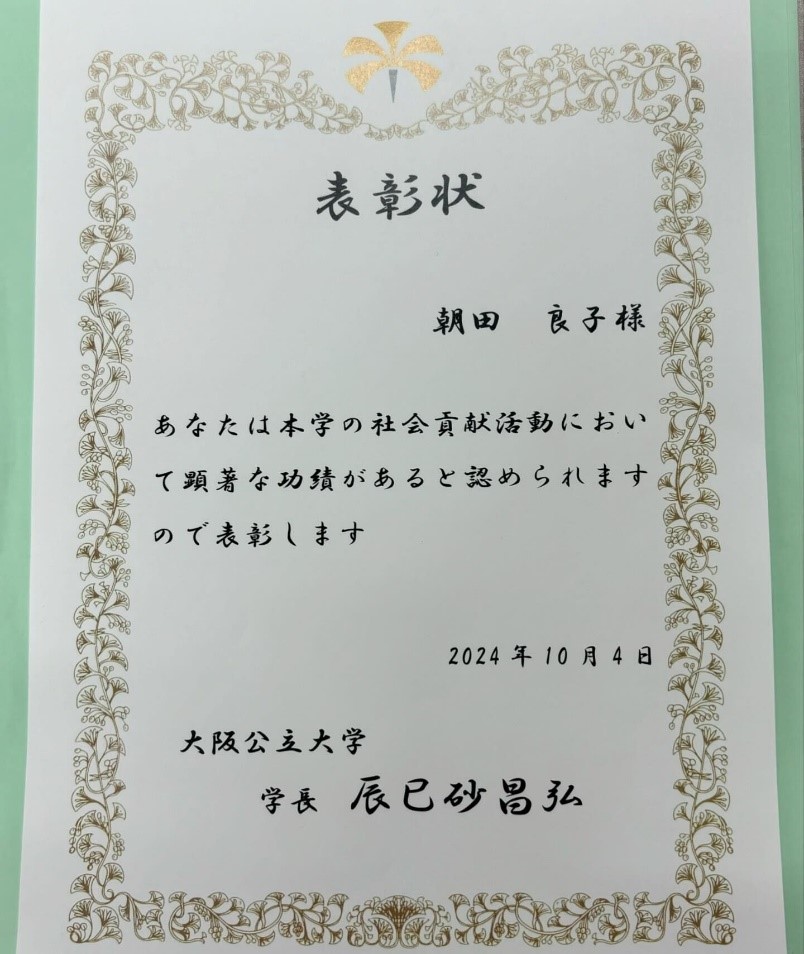 表彰状
朝田　良子様
あなたは本学の社会貢献活動におい
て顕著な功績があると認められます
ので表彰します
2024年10月4日
大阪公立大学
学長 辰巳砂昌弘